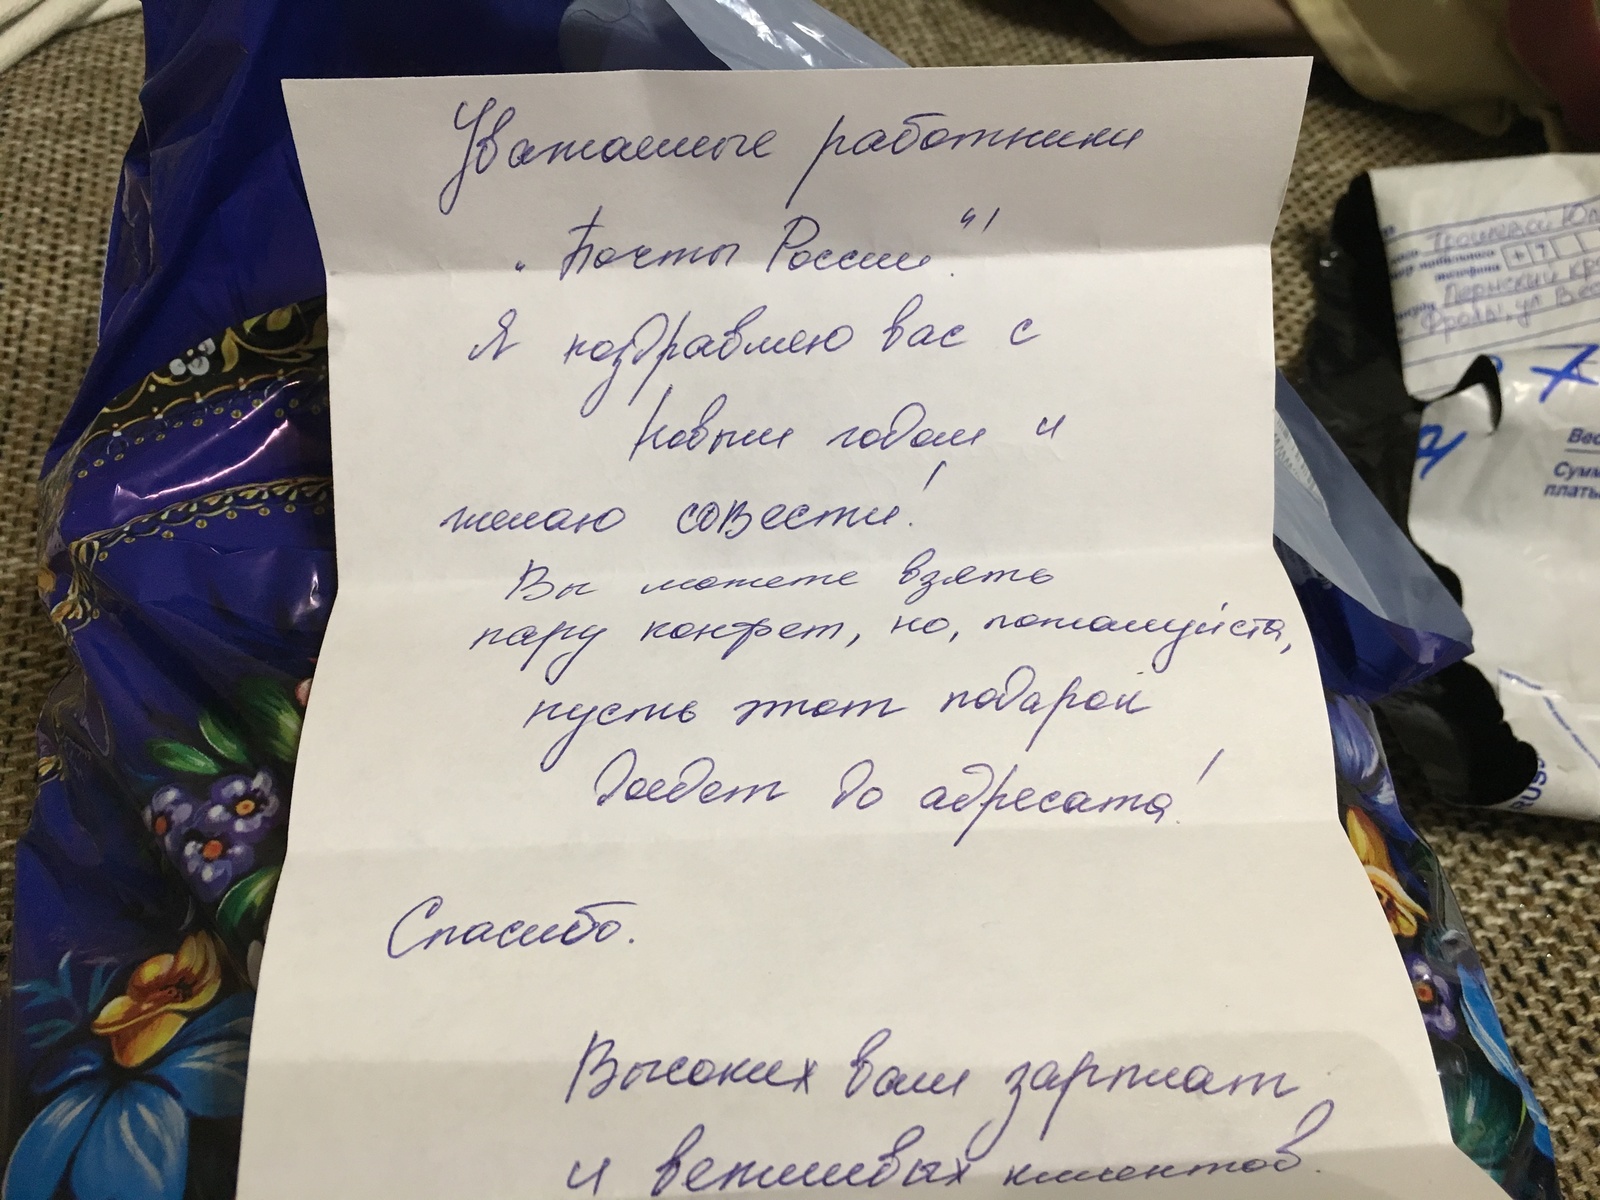 Уважаемые работники
"Почты России"!
Я поздравляю вас с
Новым годом и
желаю совести!
Вы можете взять
пару конфет, но, пожалуйста,
пусть этот подарок
дойдет до адресата!
Спасибо.
Высоких вам зарплат
и вежливых клиентов.
телефона +7
Пермский
ул
7
Вес
Сумм
плать
RUSS